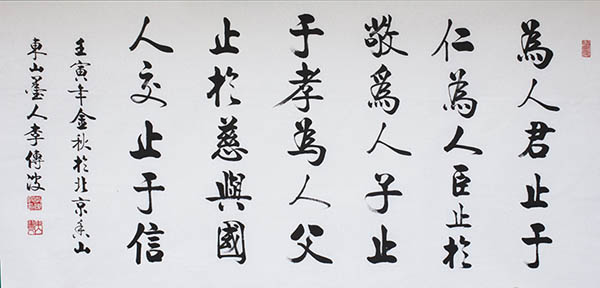 為人君止于
仁為人臣止於
敬爲人子止
于孝為人父
止於慈與國
人交止于信
壬寅年金秋於北京香山
東山墨人李傳波